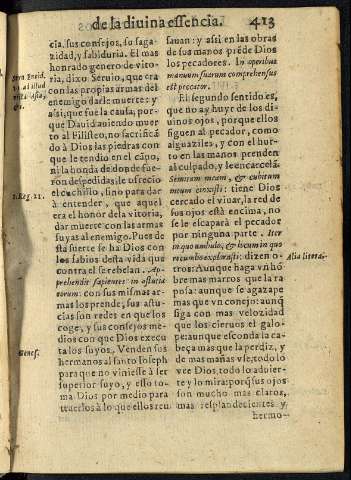 de la diuina essencia. 413
cia, sus consejos, su saga-
zidad, y sabiduria. El mas
honrado genero de vito-
ria, dixo Seruio, que era
con las propias armas del
enemigo darle muerte: y
assi, que fue la causa, por-
que Dauid auiendo muer
to al Filisteo, no sacrificá
do à Dios las piedras con
que le tendio en el cãpo,
ni la honda de donde fue-
ron despedidas, le ofrecio
el cuchillo, sino para dar
à entender, que aquel
era el honor de la vitoria,
dar muerte con las armas
suyas al enemigo. Pues de
sta suerte se ha Dios con
los sabios desta vida que
contra el se rebelan. Ap-
prehendit sapientes in astutia
eorum: con sus mismas ar
mas los prende, sus astu-
cias son redes en que los
coge, y sus consejos me-
dios con que Dios execu
ta los suyos. Venden sus
hermanos al santo Ioseph
para que no viniesse à ser
superior suyo, y esso to-
ma Dios por medio para
traerlos à lo que ellos reu
sauan: y assi en las obras
de sus manos prẽde Dios
los pecadores. In operibus
manuum suarum comprehensus
est peccator.
El segundo sentido es,
que no ay huyr de los di-
uinos ojos, porque ellos
siguen al pecador, como
alguaziles, y con el hur-
to en las manos prenden
al culpado, y le encarcelã.
Semitam meam, & cubitum
meum euoxisti: tiene Dios
cercado el viuar, la red de
sus ojos està encima, no
se le escaparà el pecador
por ninguna parte. Iter
in quo ambulo, & locum in quo
recumbo explorasti: dizen o-
tros: Aunque haga vn hõ
bre mas marros que la ra
posa: aunque se agazape
mas que vn conejo: aunq̃
siga con mas velocidad
que los cieruos el galo-
pe: aunque esconda la ca-
beça mas que la perdiz, y
de mas mañas vse, todo lo
vee Dios, todo lo aduier-
te y lo mira: porq̃ sus ojos
son mucho mas claros,
mas resplandecientes y
hermo-
1.Reg. 21.
Genes.
Alia litera.